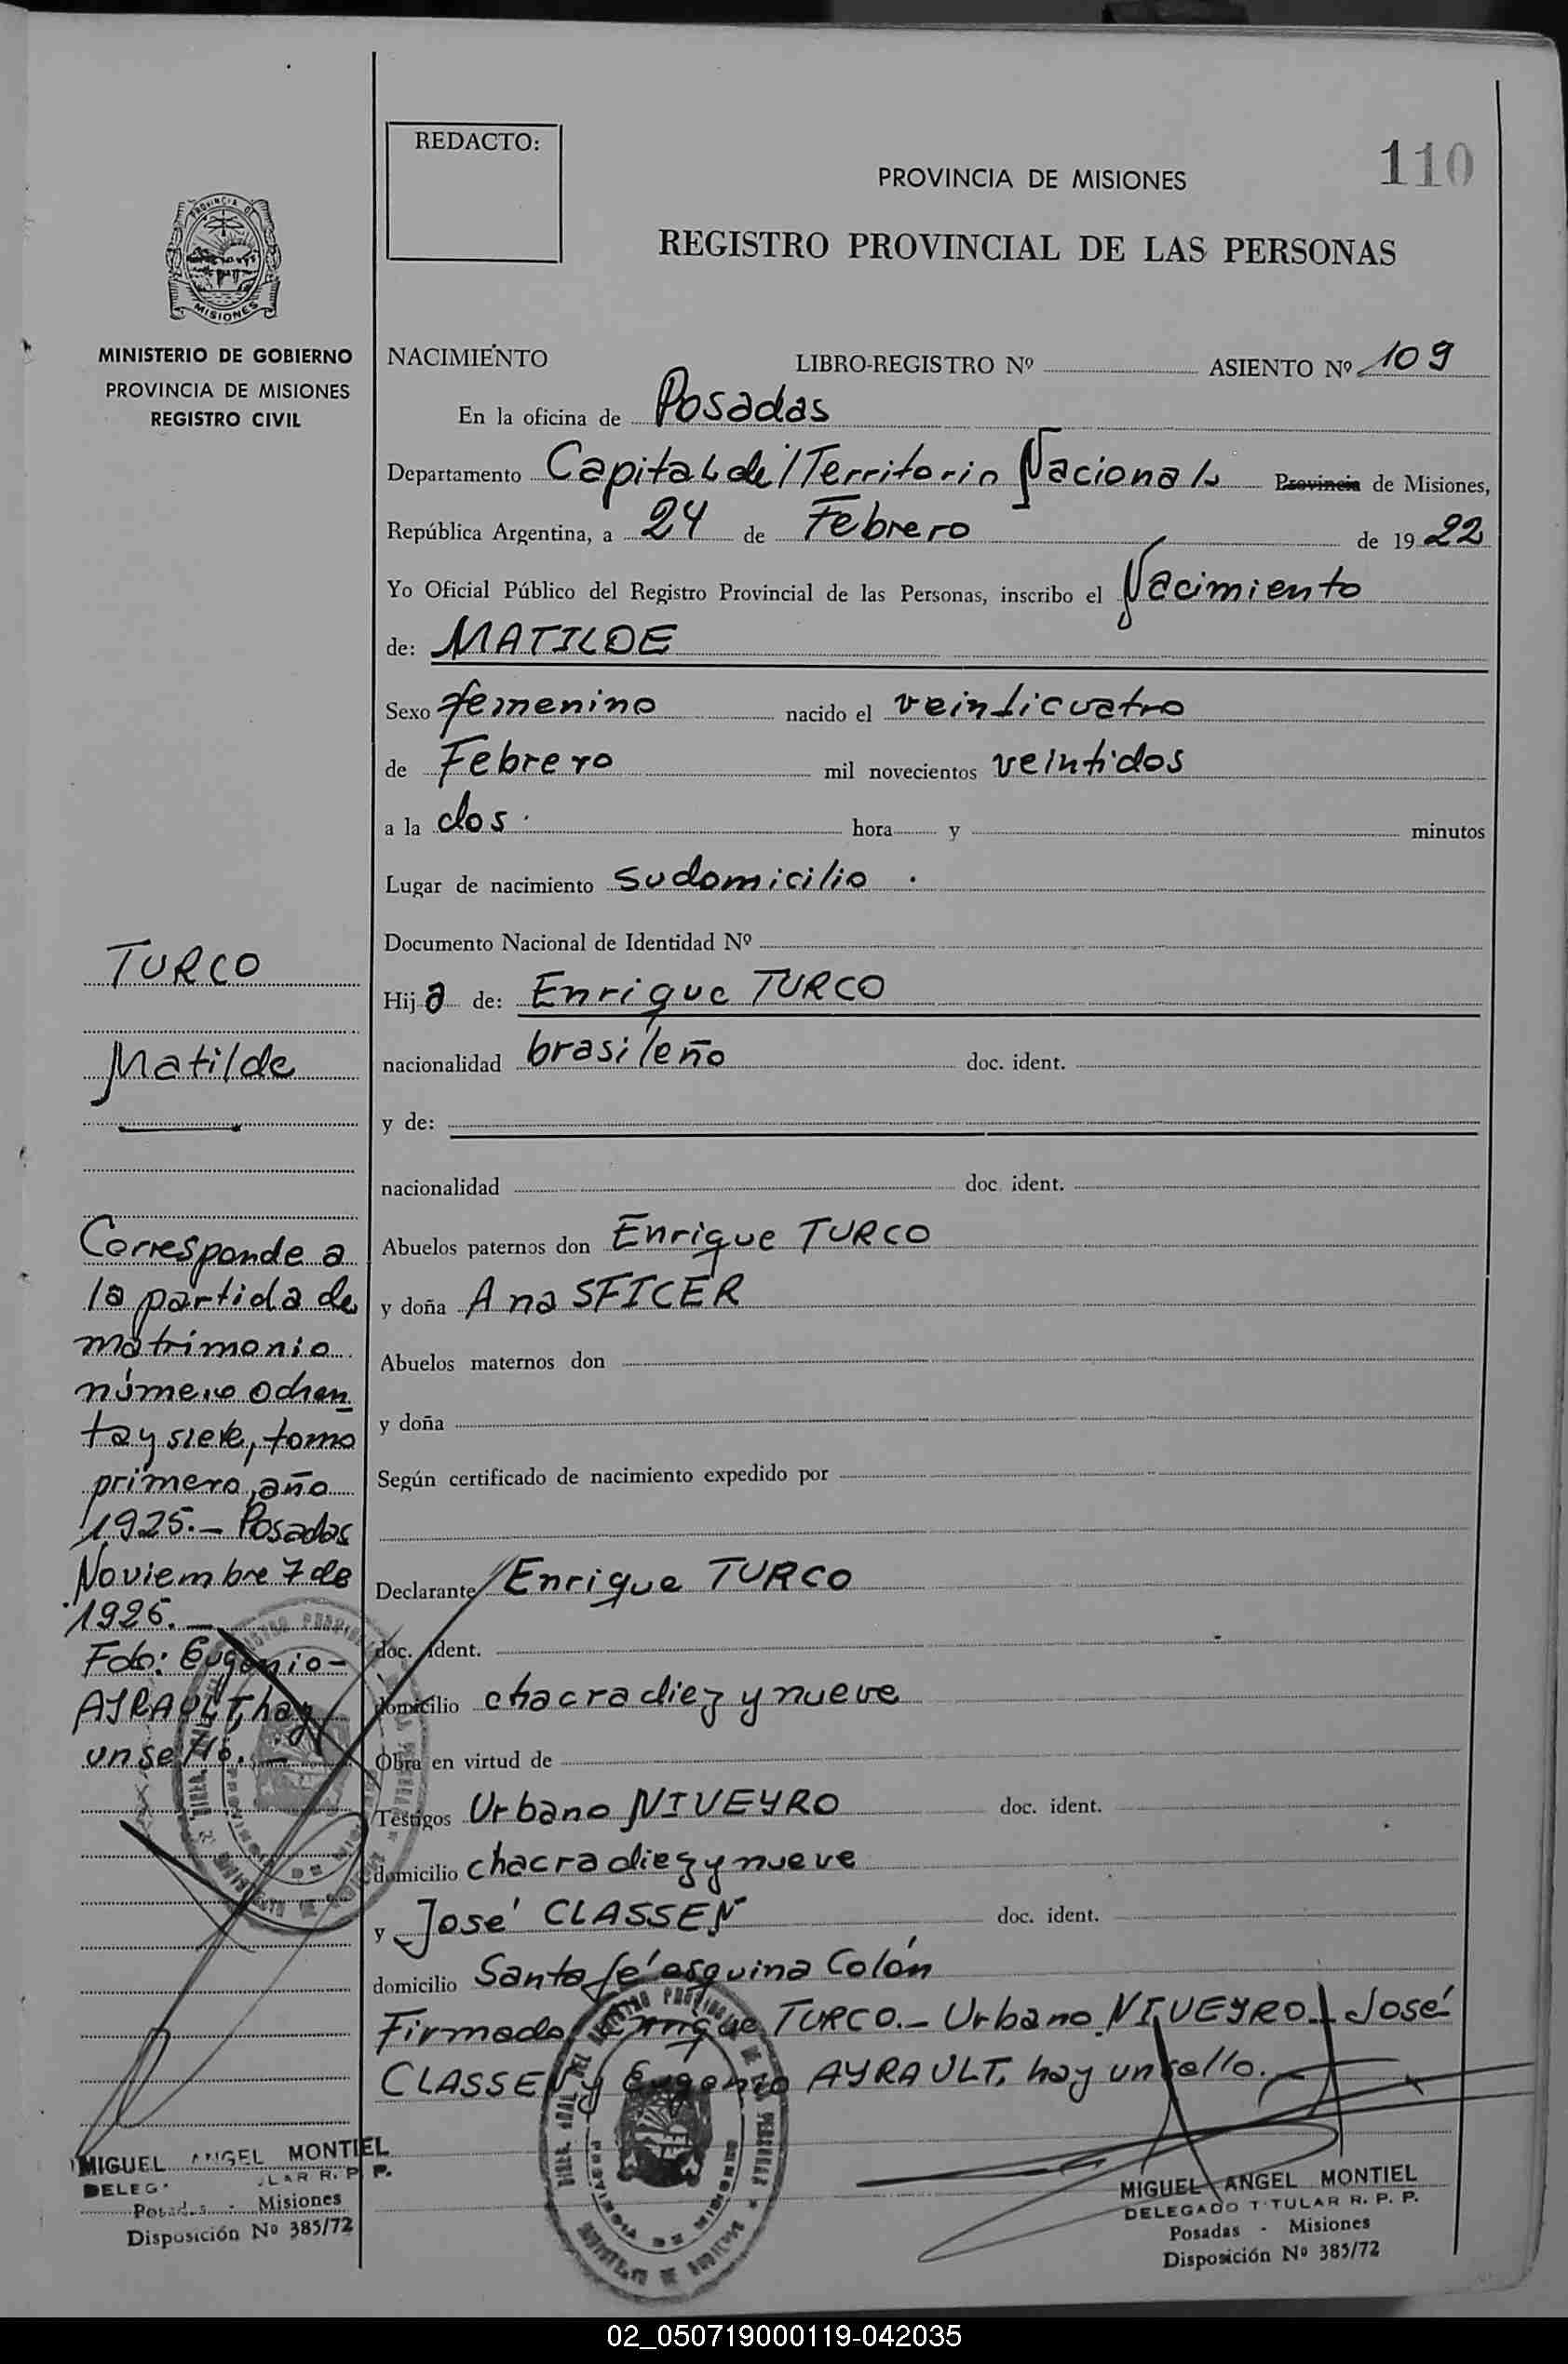 REDACTO:
110
PROVINCIA DE MISIONES
REGISTRO PROVINCIAL DE LAS PERSONAS
PROVINCIA DE
MISIONES
MINISTERIO DE GOBIERNO
PROVINCIA DE MISIONES
REGISTRO CIVIL
NACIMIENTO LIBRO-REGISTRO Nº ASIENTO Nº 109
En la oficina de Posadas
Departamento Capital del Territorio Nacional Provincia de Misiones,
República Argentina, a 24 de Febrero de 1922
Yo Oficial Público del Registro Provincial de las Personas, inscribo el Nacimiento
de: MATILDE
Sexo femenino nacido el veinticuatro
de Febrero mil novecientos veintidos
a la dos hora y minutos
Lugar de nacimiento su domicilio .
Documento Nacional de Identidad Nº
Hija de: Enrique TURCO
nacionalidad brasileño doc. ident.
y de:
nacionalidad doc. ident.
Abuelos paternos don Enrique TURCO
y doña Ana SFICER
Abuelos maternos don
y doña
Según certificado de nacimiento expedido por
Declarante Enrique TURCO
doc. ident.
domicilio chacra diez y nueve
Obra en virtud de
Testigos Urbano NIVEYRO doc. ident.
domicilio chacra diez y nueve
y José CLASSEN doc. ident.
domicilio Santa fé esquina Colón
Firmado Enrique TURCO.- Urbano NIVEYRO.- José
CLASSEN y Eugenio AYRAULT, hay un sello.-
TURCO
Matilde
Corresponde a
la partida de
matrimonio
número ochen
ta y siete, tomo
primero, año
1925.- Posadas
Noviembre 7 de
1925.-
Fdo: Eugenio-
AYRAULT, hay
un sello.-
MIGUEL ANGEL MONTIEL
Posadas - Misiones
Disposición Nº 385/72
MIGUEL ANGEL MONTIEL
DELEGADO TITULAR R. P. P.
Posadas - Misiones
Disposición Nº 385/72
02_050719000119-042035